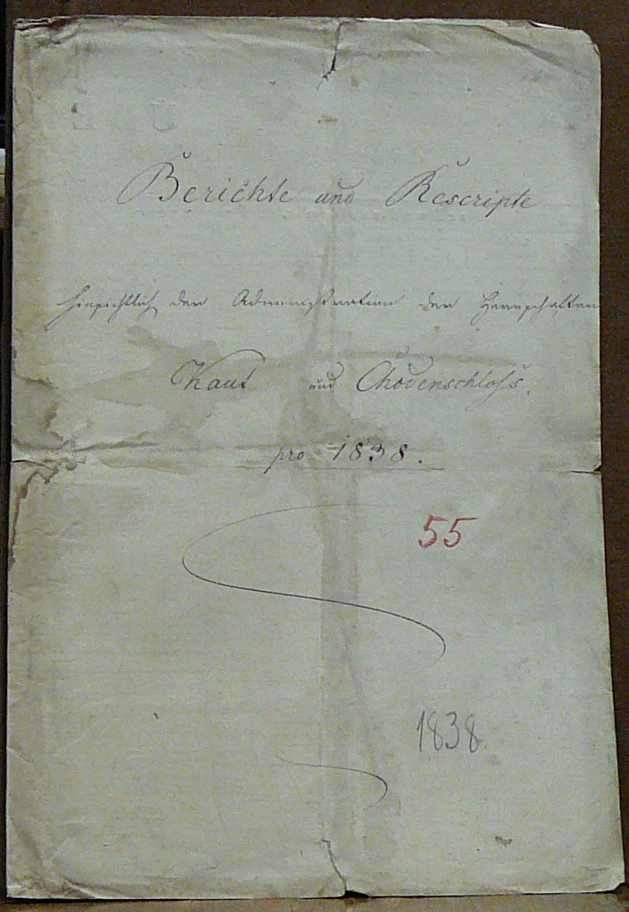 Berichte und Rescripte
hinsichtlich der Administration der Herrschaften
Kaut und Chodenschloss.
pro 1838.
55
1838.